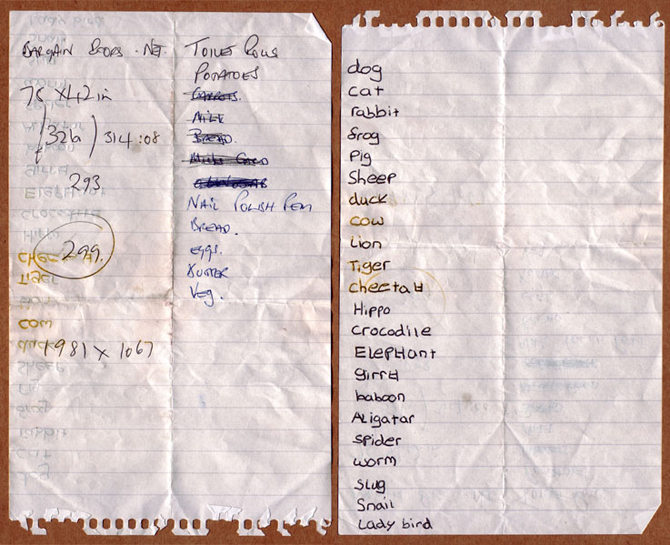 BARGAIN DOORS . NET.
78 x 42 in
(32lb) 314:08
293
299.
1981 x 1067
TOILET ROLLS
POTATOES
CARROTS.
MILK
BREAD.
NAIL POLISH REM
BREAD.
eggs.
BUTTER
Veg.
dog
cat
rabbit
frog
Pig
Sheep
duck
cow
Lion
Tiger
cheetah
Hippo
crocodile
ElepHant
girra
baboon
Aligatar
spider
worm
slug
Snail
Lady bird